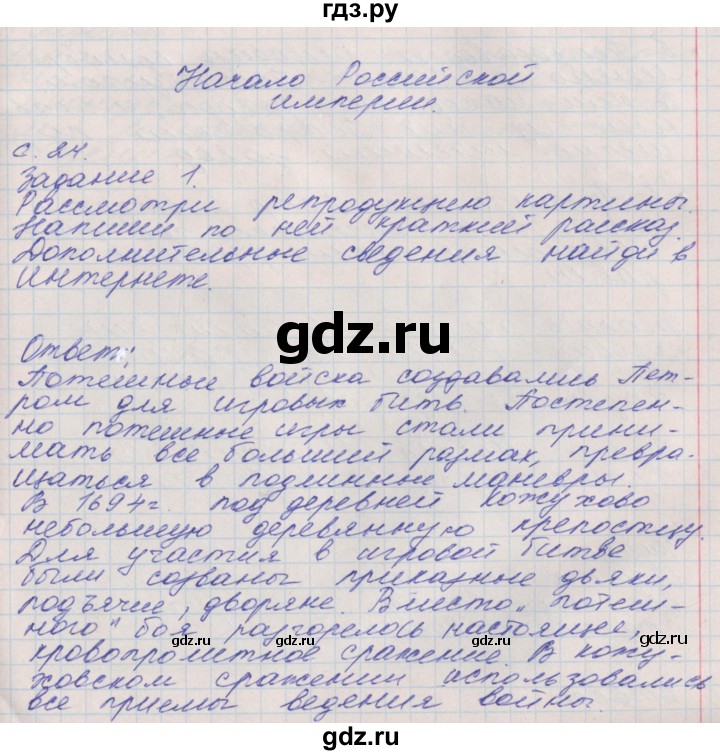 гдз.ру
Начало Российской
империи.
с. 24.
Задание 1.
Рассмотри репродукцию картины.
Напиши по ней краткий рассказ.
Дополнительные сведения найди в
Интернете.
gdz.ru
Ответ:
Потешные войска создавались Пет-
ром для игровых битв. Постепен-
но потешные игры стали прини-
мать все больший размах, превра-
щаться в подлинные маневры.
В 1694г. под деревней Кожухово
небольшую деревянную крепостицу.
Для участия в игровой битве
были созваны приказные дьяки,
подъячие, дворяне. Вместо "потеш-
ного" боя разгорелось настоящее,
gdz.ru gdz.ru gdz.ru
кровопролитное сражение. В Кожу-
ховском сражении использовались
все приемы ведения войны.
gdz.ru